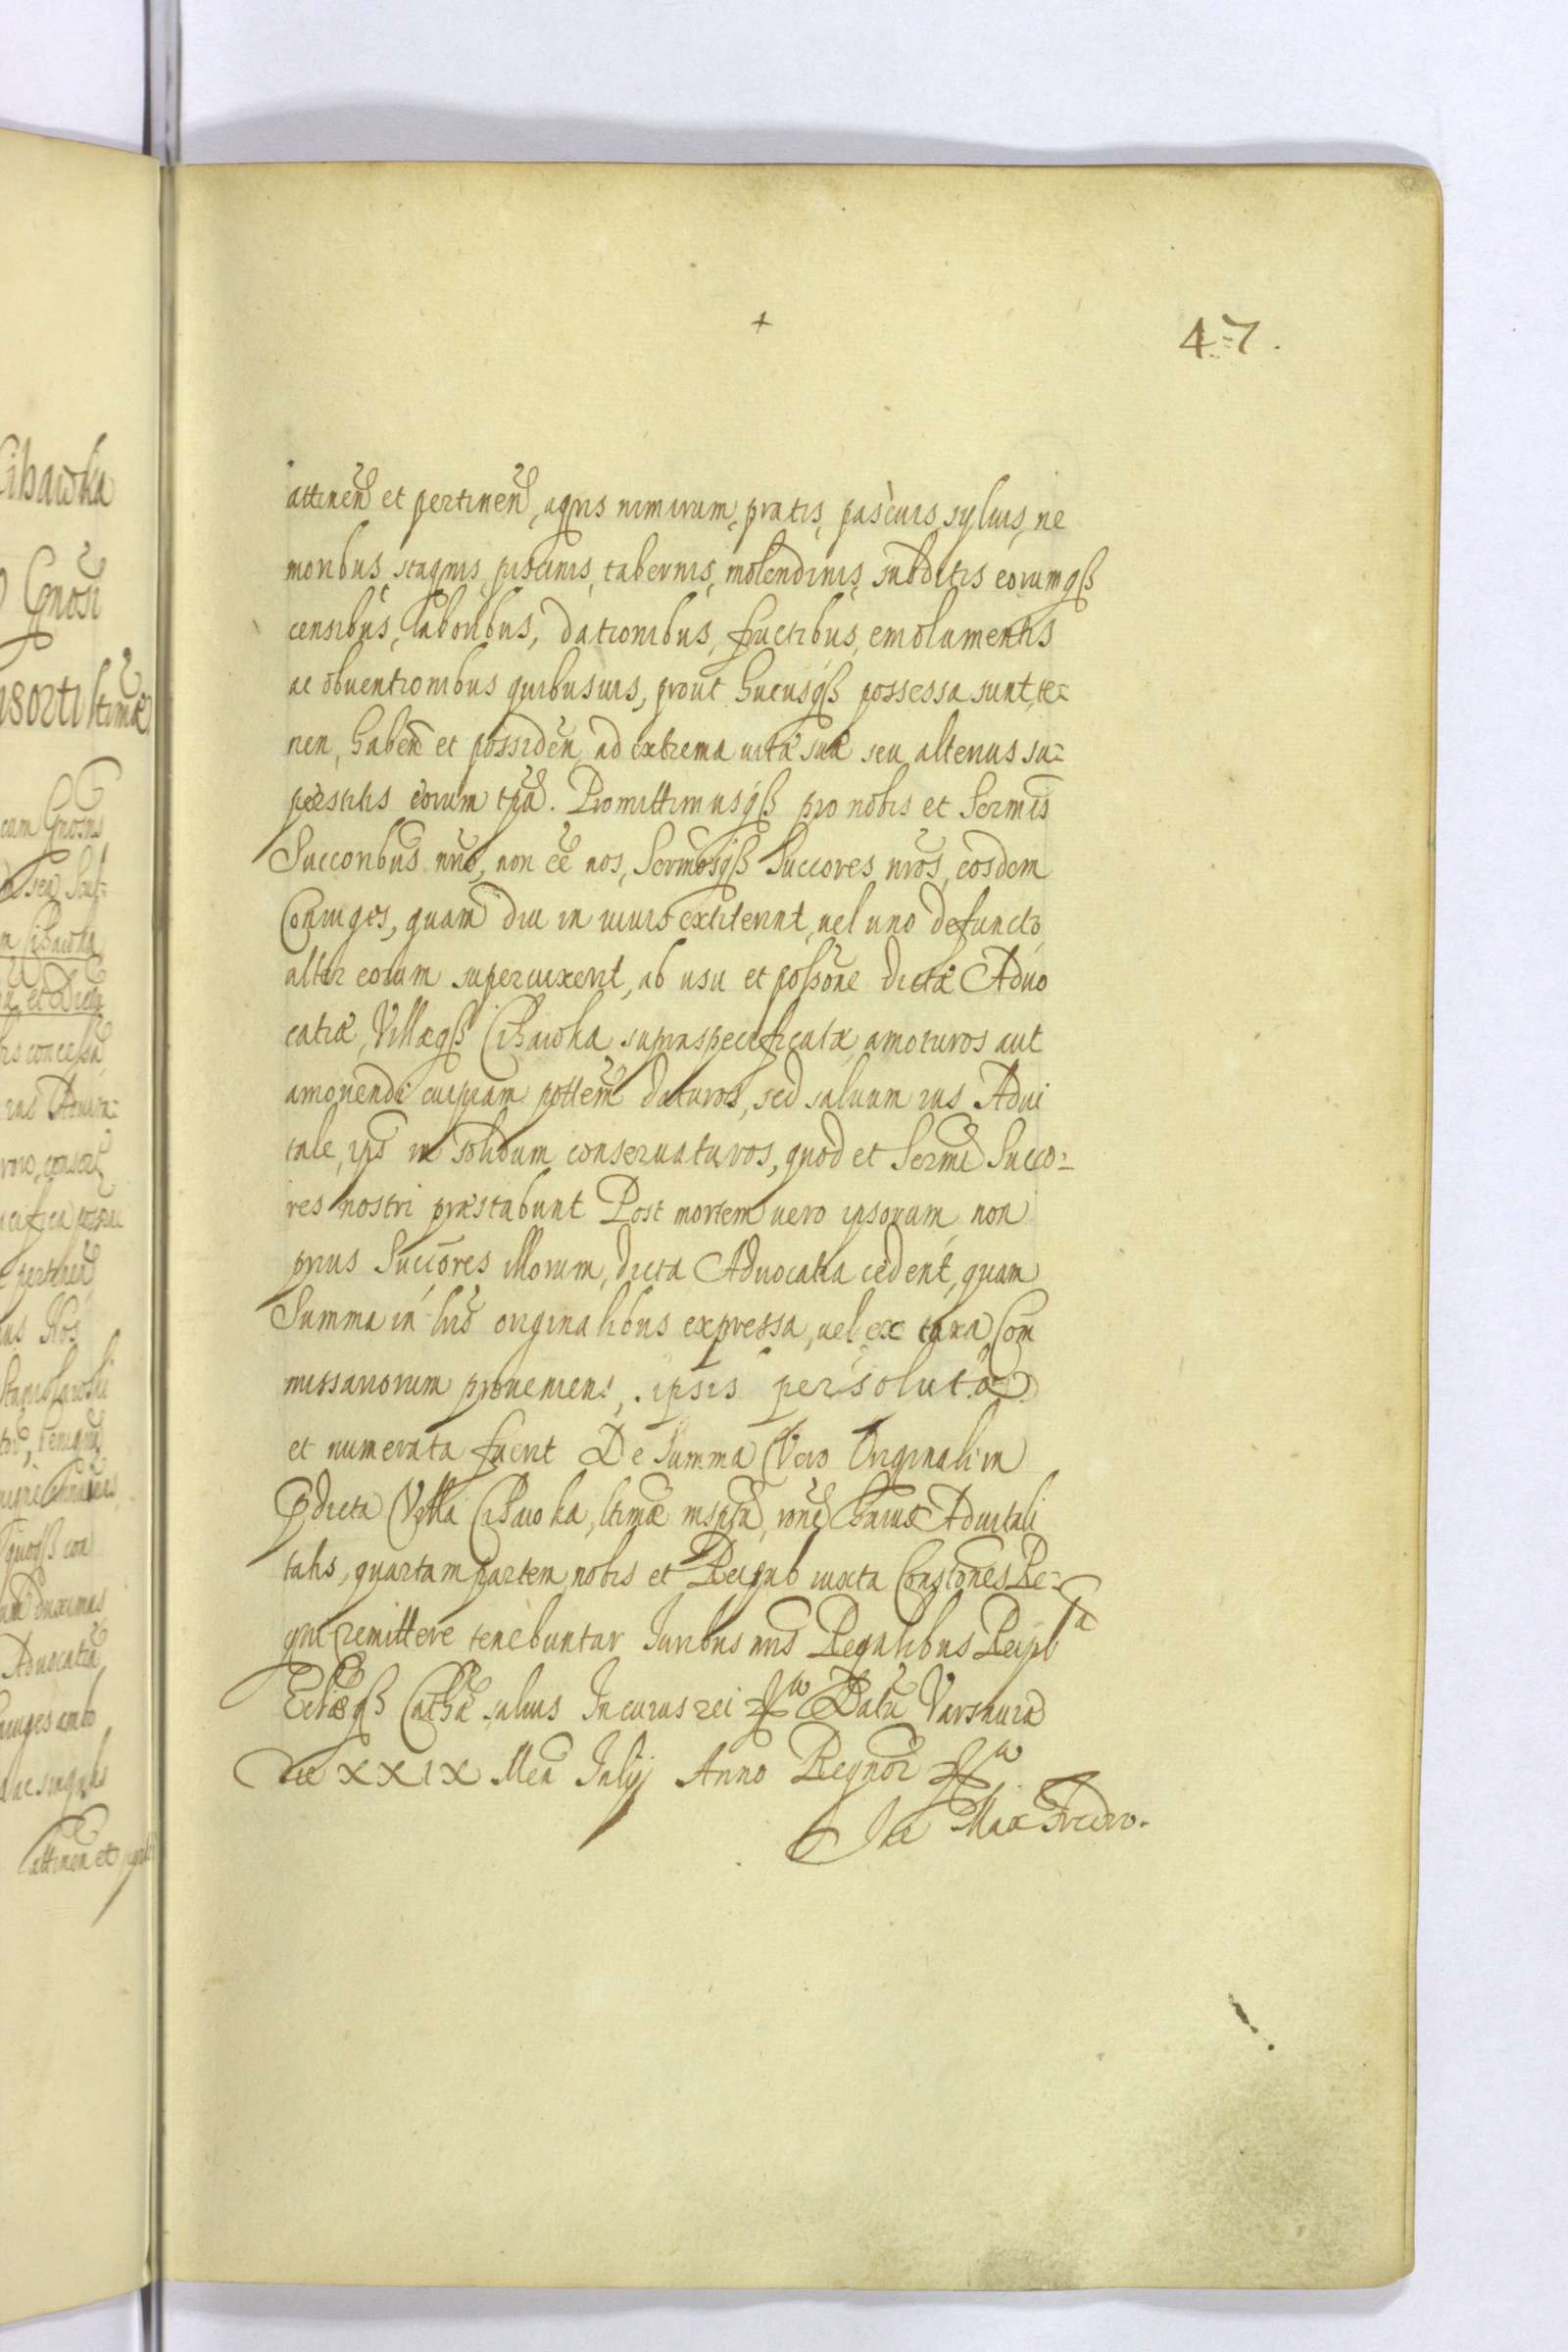 +
47.
attinen et pertinen, agris nimirum, pratis, pascuis, sylvis, ne
moribus, stagnis, piscinis, tabernis, molendinis, subditis eorumqß
censibus, laboribus, dationibus, fructibus, emolumentis
ac obuentionibus quibusuis, prout hucusqß possessa sunt, te=
nen, haben et possiden, ad extrema uitæ suæ seu alterius su=
perstitis eorum tpa. Promittimusqß pro nobis et Sermis
Succoribus nris, non ee nos, Sermosqß Succores nros, eosdem
Coniuges, quam diu in uiuis extiterint, uel uno defuncto,
alter eorum superuixerit, ab usu et possone dictæ Aduo
catiæ, Villæqß Cihawka supraspecificatæ, amoturos aut
amouendi cuipiam pottem daturos, sed saluum ius Adui
tale, ips in solidum conseruaturos, quod et Sermi Succo=
res nostri præstabunt Post mortem uero ipsorum, non
prius Succores illorum, dicta Aduocatia cedent, quam
Summa in lris originalibus expressa, uel ex taxa Com
missariorum proueniens, ipsis persoluta
et numerata fuerit De summa Vero Originali in
Pdicta Villa Cihawka, ltimæ inscpta, rone huius Aduitali
tatis, quartam partem nobis et Reipub iuxta Constones Re=
gni remittere tenebuntur Iuribus nris Regalibus Reiplæ
Ecclæqß Cathæ saluis In cuius rei Datu Varsauiæ
die XXIX Men Julij Anno Regnor
Max Fredro.
Cihawka
Gnosi
ltimæ
cam Gnosus
Cihawka
et Dictæ
concessa
ius
cifica
pertinen
Nos
con
duximus
Aduocatia
iuges ambo
ac singulis
attinen et